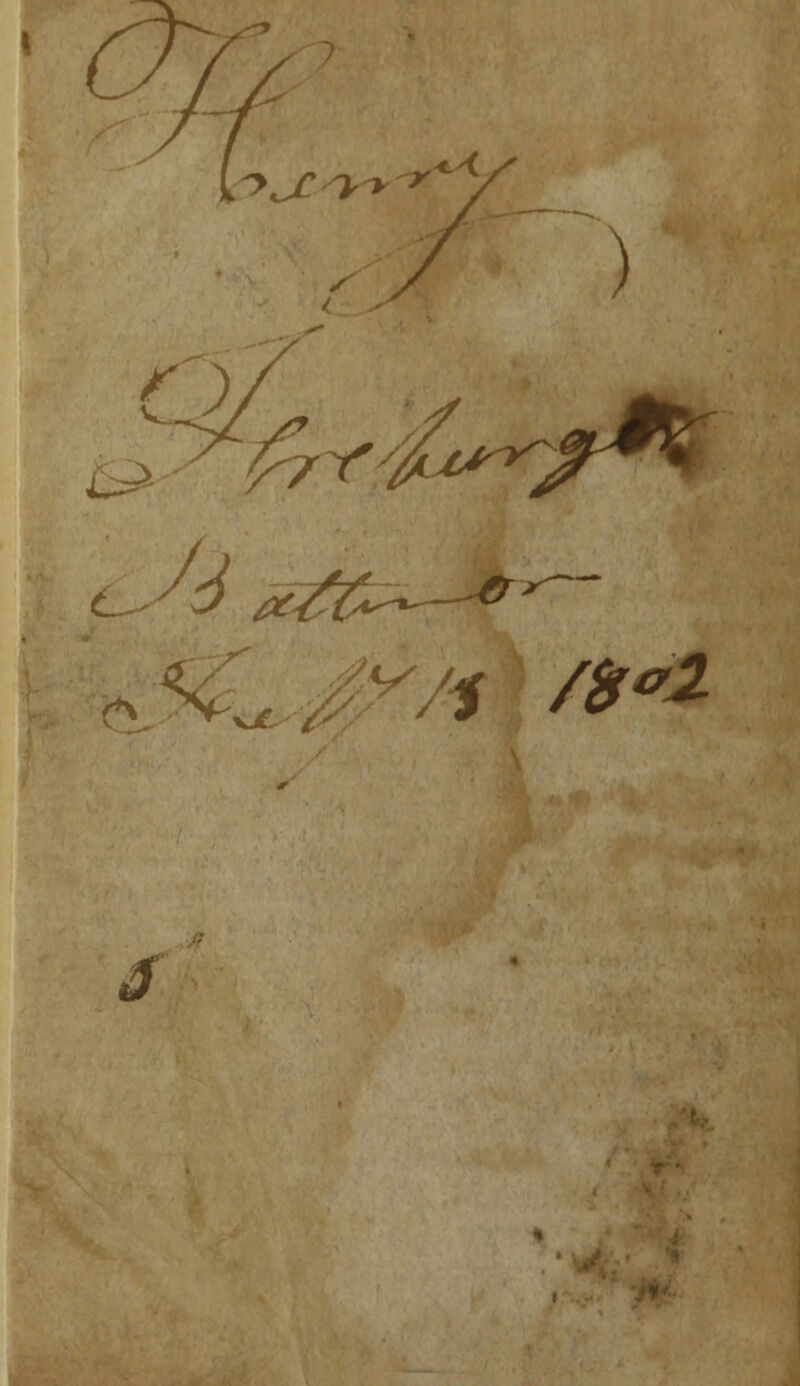 Henry
Freburger
Baltimor
Feby 15 1802